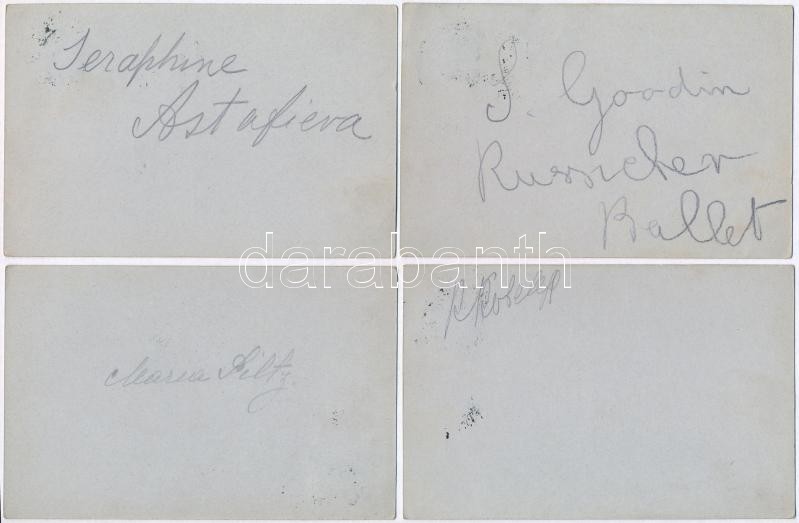 Seraphine
Astafieva
S. Goodin
Russischer
Ballet
Maria Piltz.
darabanth